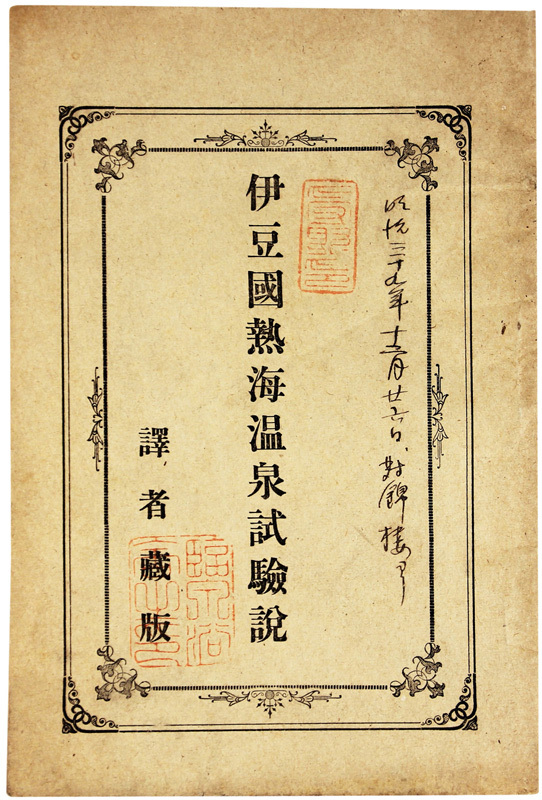 明治三十九年十二月廿六日、對錦樓
伊豆國熱海温泉試驗說
譯者藏版